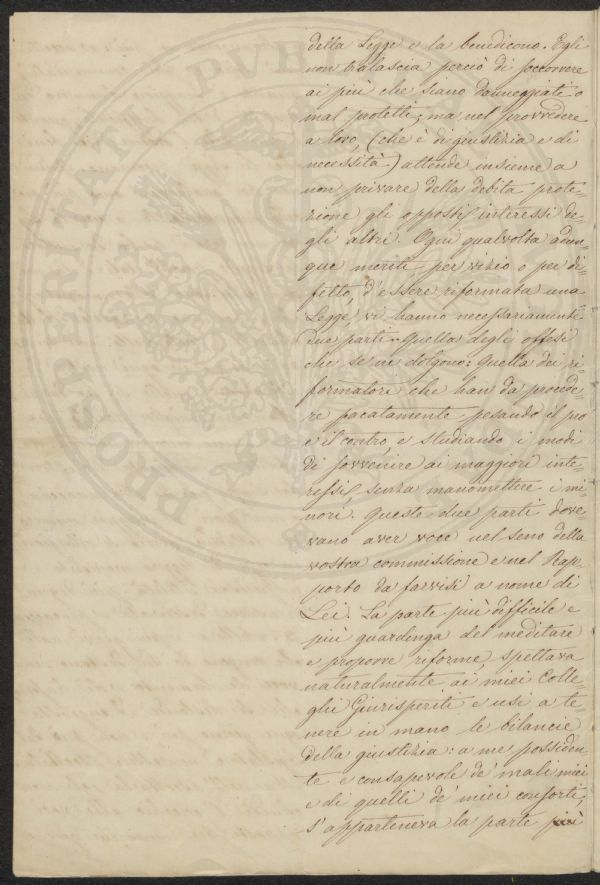 della Legge e la benedicono. Egli
non tralascia perciò di soccorrere
ai più che siano danneggiati o
mal protetti; ma nel provvedere
a loro, (che è di giustizia e di
necessità) attende insieme a
non privare della debita prote=
zione gli opposti interessi de=
gli altri. Ogni qualvolta adun=
que meriti, per vizio o per di=
fetto, d'essere riformata una
Legge, vi hanno necessariamente
due parti. Quella degli offesi
che se ne dolgono: Quella dei ri=
formatori che han da procede=
re pacatamente pesando il pro
e il contro, e studiando i modi
di sovvenire ai maggiori inte=
ressi, senza manomettere i mi=
nori. Queste due parti dove=
vano aver voce nel seno della
vostra commissione e nel Rap=
porto da farvisi a nome di
Lei. La parte più difficile e
più guardinga del meditare
e proporre riforme, spettava
naturalmente ai miei Colle=
ghi Giurisperiti e usi a te=
nere in mano le bilancie
della giustizia: a me possiden=
te e consapevole de' mali miei
e di quelli de' miei consorti,
s'apparteneva la parte più
PROSPERITATI PVB